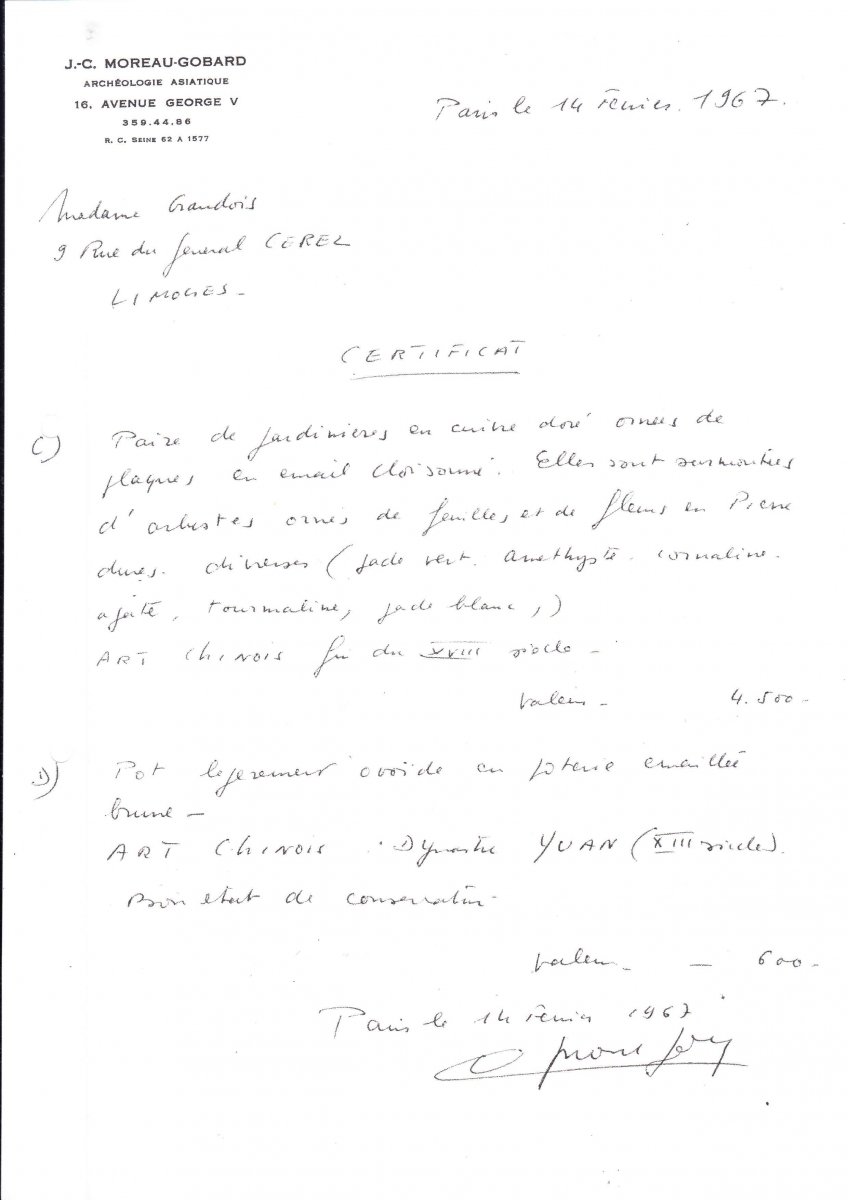 J.-C. MOREAU-GOBARD
ARCHÉOLOGIE ASIATIQUE
16, AVENUE GEORGE V
359.44.86
R. C. SEINE 62 A 1577
Paris le 14 Février 1967.
Madame Grandois
9 Rue du General CEREZ
LIMOGES -
CERTIFICAT
C) Paire de Jardinières en cuivre doré ornées de
plaques en email cloisonné. Elles sont surmontées
d'arbustes ornés de feuilles et de fleurs en Pierre
dures. diverses (jade vert. améthyste. cornaline.
agate, tourmaline, jade blanc,)
ART CHINOIS fin du XVIII siècle -
Valeur - 4.500 -
D) Pot legerement ovoïde en poterie emaillée
brune -
ART CHINOIS. Dynastie YUAN (XIII siècle).
Bon etat de conservation -
Valeur - - 600 -
Paris le 14 Février 1967